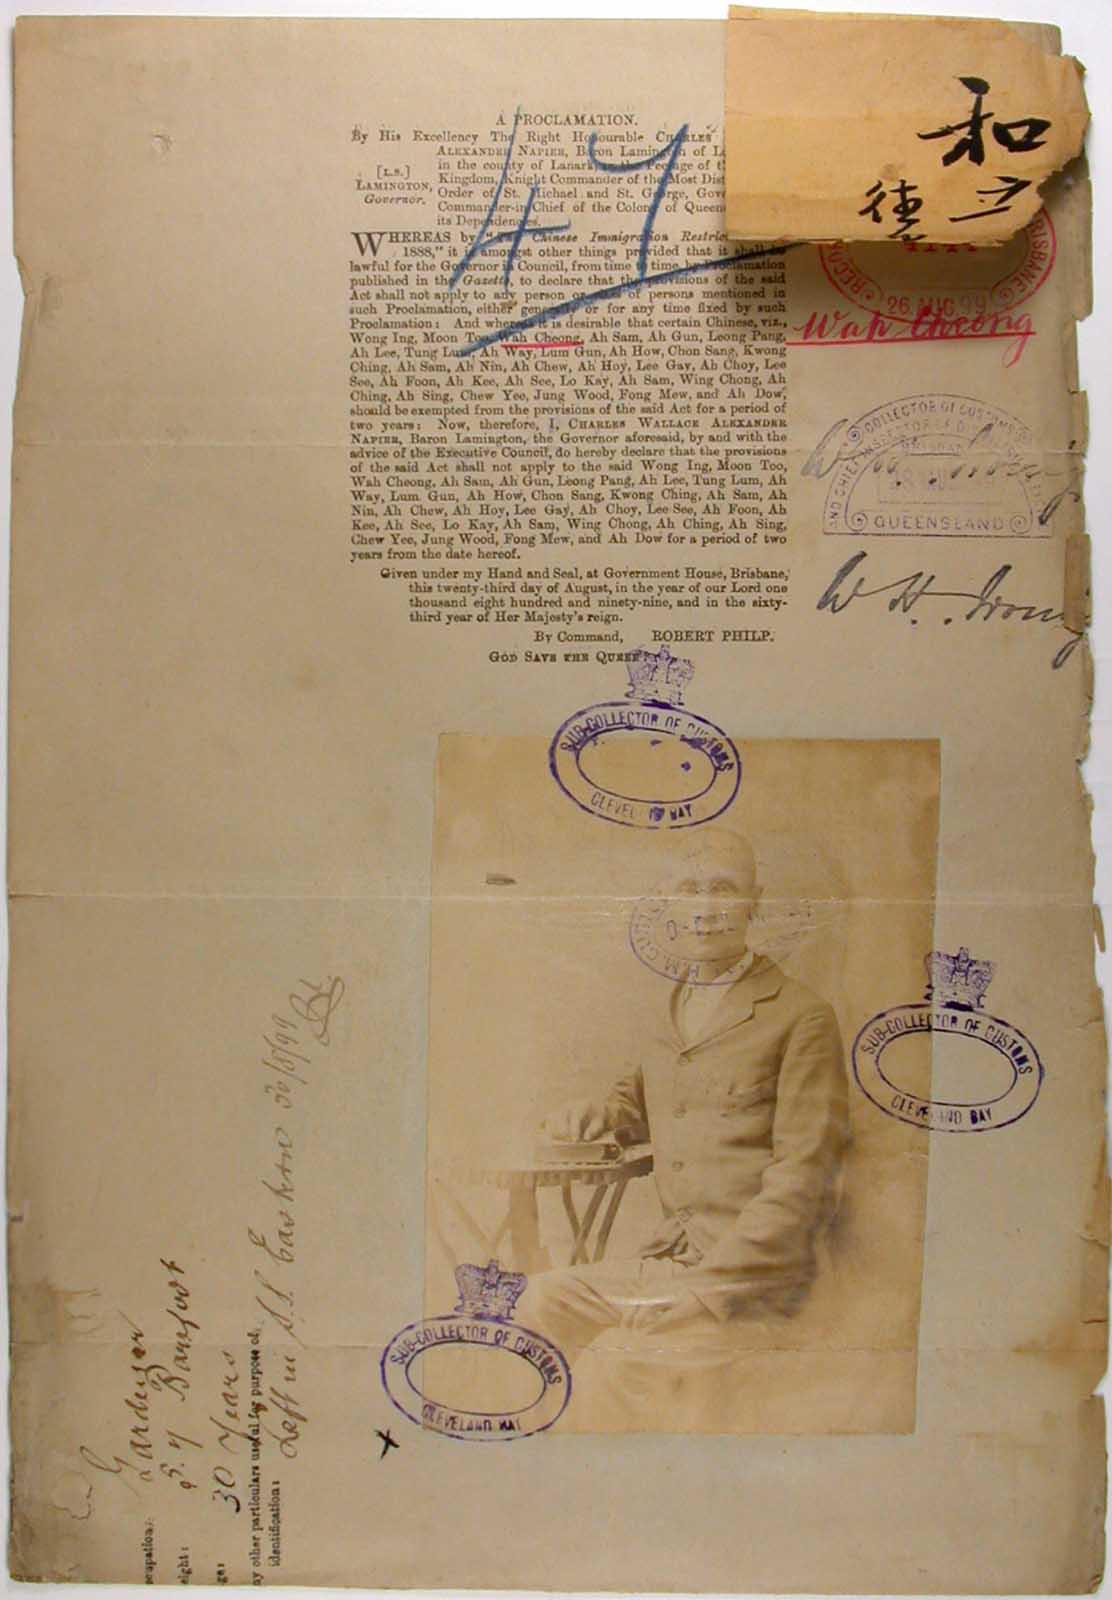 A PROCLAMATION.
By His Excellency The Right Honourable CHARLES
ALEXANDER NAPIER, Baron Lamington of
in the county of Lanark, in the Peerage of
Kingdom, Knight Commander of the Most
Order of St. Michael and St. George,
Commander-in-Chief of the Colony of
its Dependencies.
[L.S.]
LAMINGTON,
Governor.
47
WHEREAS by "The Chinese Immigration
1888," it is amongst other things provided that it shall be
lawful for the Governor in Council, from time to time, by Proclamation
published in the Gazette, to declare that the provisions of the said
Act shall not apply to any person or class of persons mentioned in
such Proclamation, either generally or for any time fixed by such
Proclamation: And whereas it is desirable that certain Chinese, viz.,
Wong Ing, Moon Too, Wah Cheong, Ah Sam, Ah Gun, Leong Pang,
Ah Lee, Tung Lum, Ah Way, Lum Gun, Ah How, Chon Sang, Kwong
Ching, Ah Sam, Ah Nin, Ah Chew, Ah Hoy, Lee Gay, Ah Choy, Lee
See, Ah Foon, Ah Kee, Ah See, Lo Kay, Ah Sam, Wing Chong, Ah
Ching, Ah Sing, Chew Yee, Jung Wood, Fong Mew, and Ah Dow,
should be exempted from the provisions of the said Act for a period of
two years: Now, therefore, I, CHARLES WALLACE ALEXANDER
NAPIER, Baron Lamington, the Governor aforesaid, by and with the
advice of the Executive Council, do hereby declare that the provisions
of the said Act shall not apply to the said Wong Ing, Moon Too,
Wah Cheong, Ah Sam, Ah Gun, Leong Pang, Ah Lee, Tung Lum, Ah
Way, Lum Gun, Ah How, Chon Sang, Kwong Ching, Ah Sam, Ah
Nin, Ah Chew, Ah Hoy, Lee Gay, Ah Choy, Lee See, Ah Foon, Ah
Kee, Ah See, Lo Kay, Ah Sam, Wing Chong, Ah Ching, Ah Sing,
Chew Yee, Jung Wood, Fong Mew, and Ah Dow for a period of two
years from the date hereof.
Given under my Hand and Seal, at Government House, Brisbane,
this twenty-third day of August, in the year of our Lord one
thousand eight hundred and ninety-nine, and in the sixty-
third year of Her Majesty's reign.
By Command, ROBERT PHILP.
GOD SAVE THE QUEEN
和
立
德
BRISBANE
26 AUG 99
Wah Cheong
COLLECTOR OF CUSTOMS
AND CHIEF INSPECTOR OF
BRISBANE
QUEENSLAND
W. H.
SUB-COLLECTOR OF CUSTOMS
CLEVELAND BAY
H.M. CUSTOMS
SUB-COLLECTOR OF CUSTOMS
CLEVELAND BAY
SUB-COLLECTOR OF CUSTOMS
CLEVELAND BAY
x
ccupation: Gardener
eight: 5. 7 Barefoot
ge: 30 Years
ny other particulars useful for purpose of
identification: Left in S.S. Eastern 30/8/99